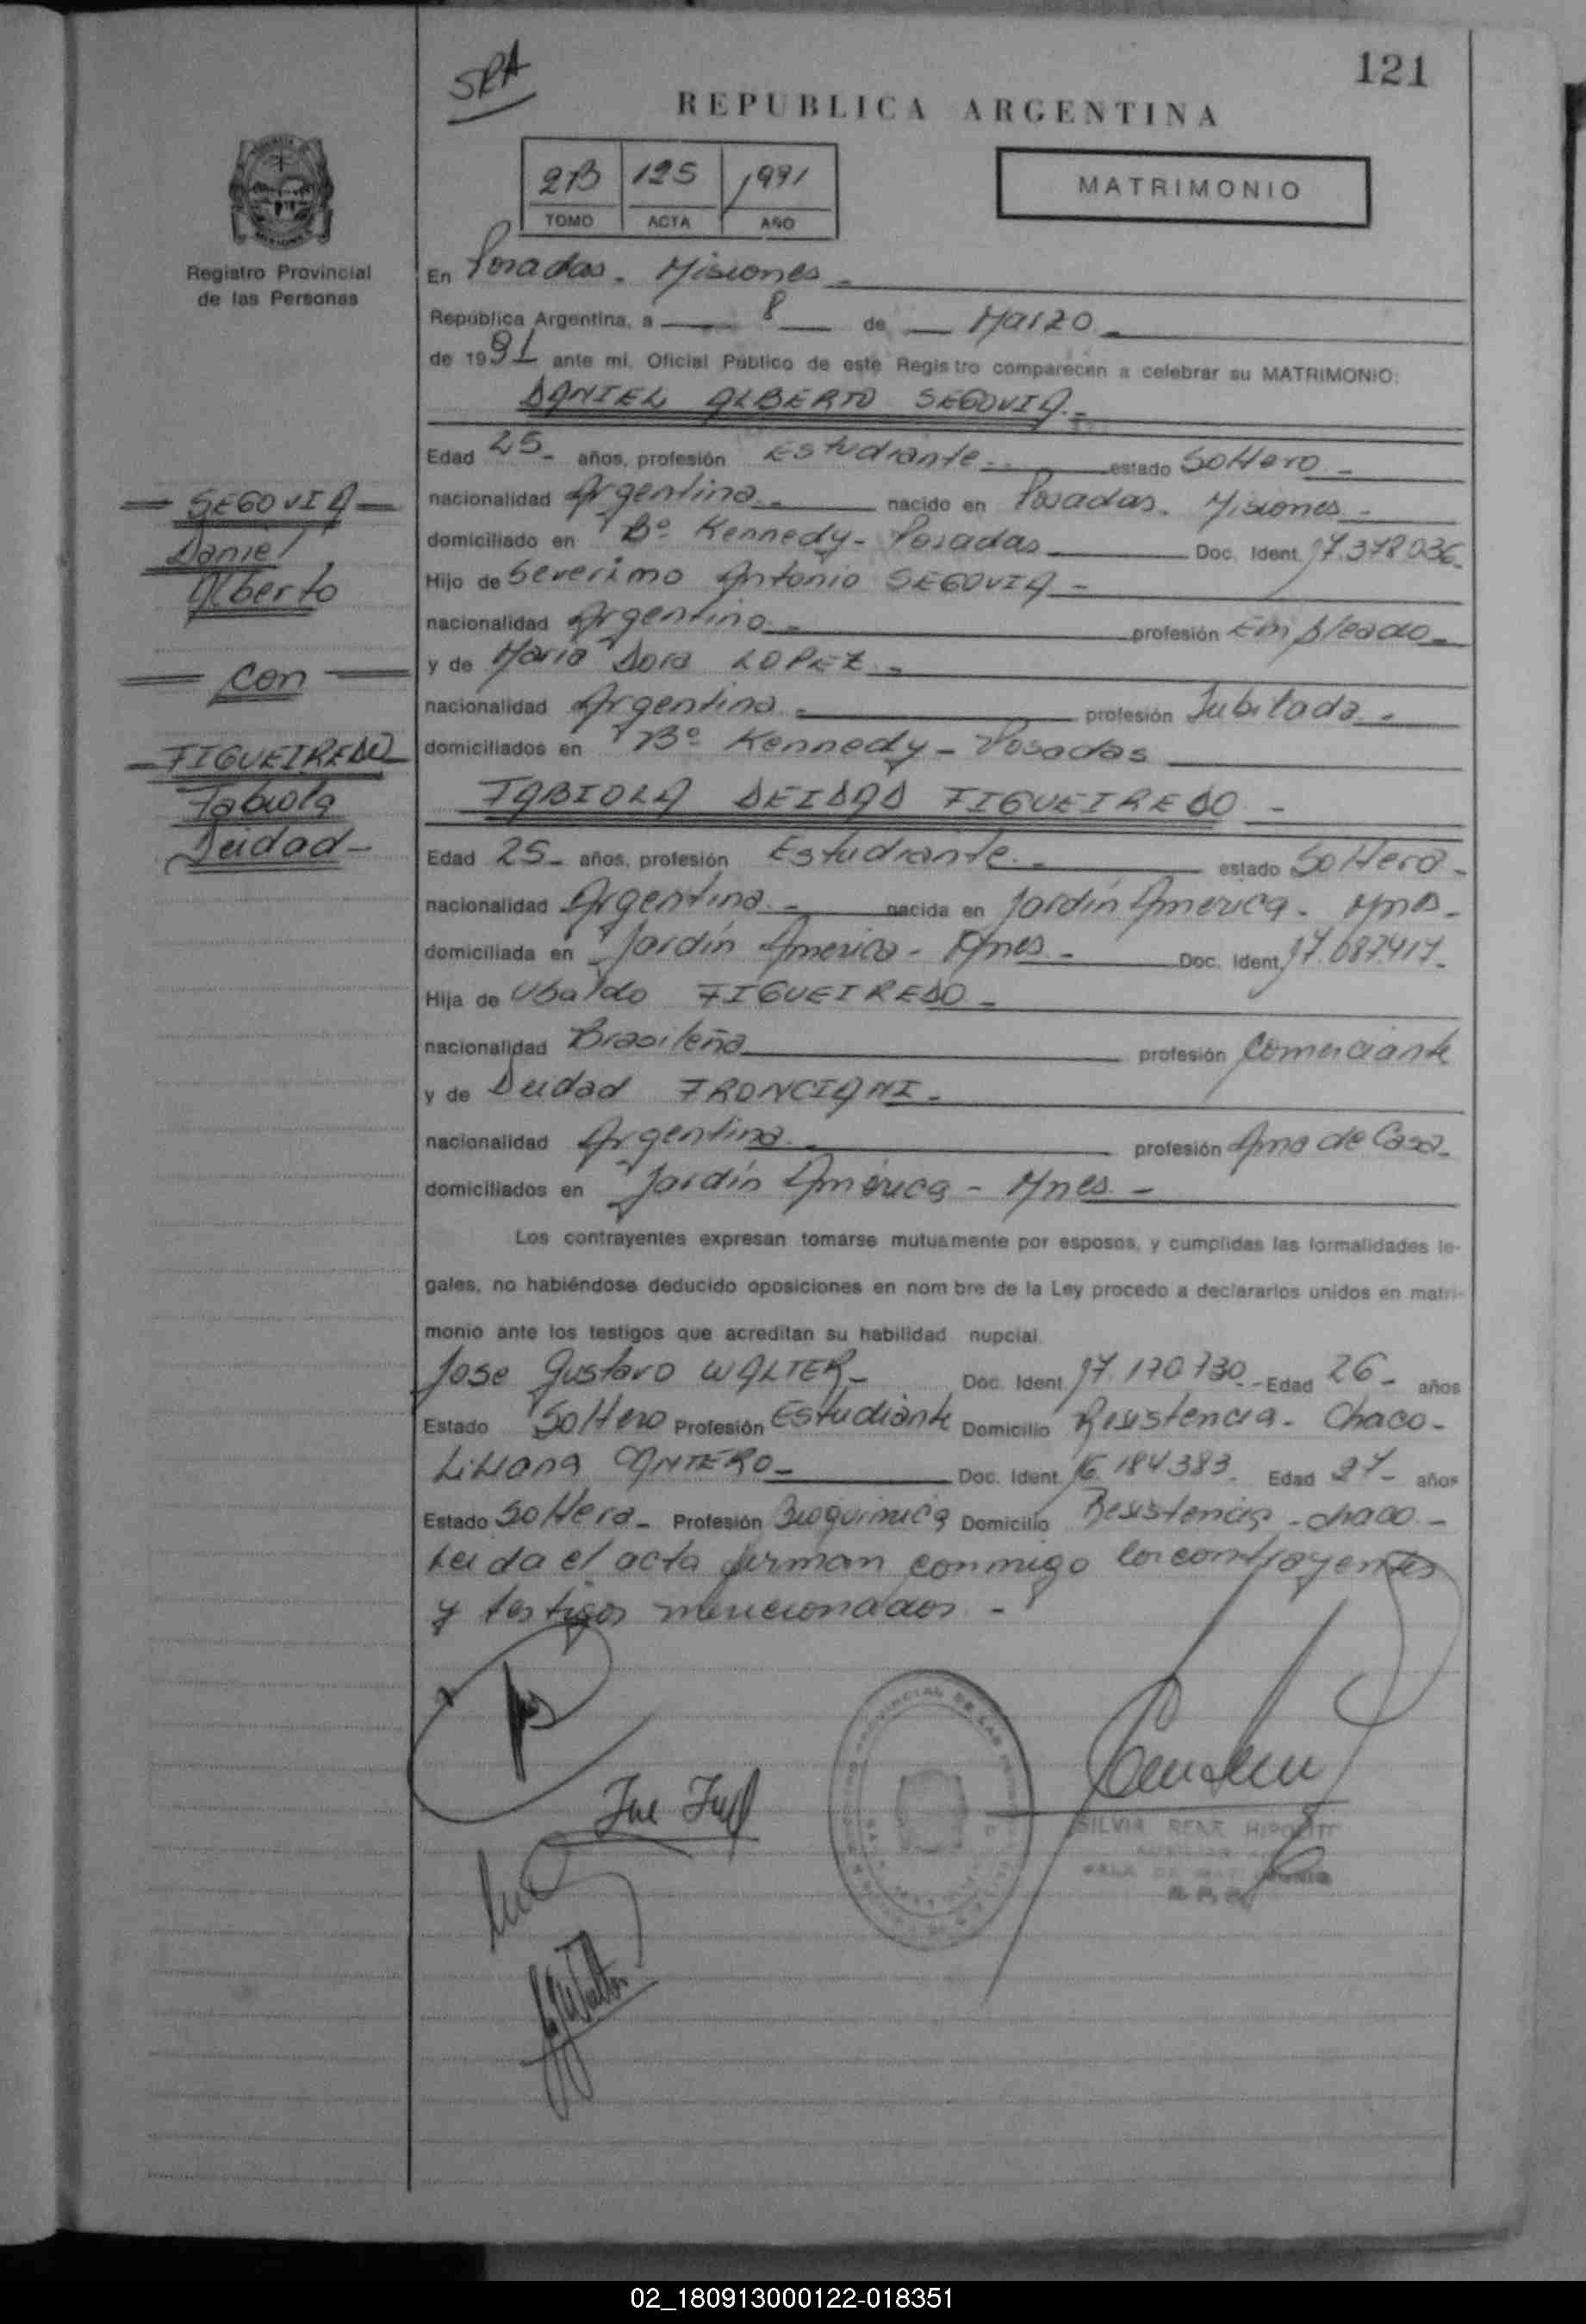 121
SRA
REPUBLICA ARGENTINA
2B 125 1991
TOMO ACTA AÑO
MATRIMONIO
Registro Provincial
de las Personas
En Posadas - Misiones -
República Argentina, a 8 de Marzo -
de 1991 ante mi, Oficial Público de este Registro comparecen a celebrar su MATRIMONIO:
DANIEL ALBERTO SEGOVIA.-
Edad 25- años, profesión Estudiante.- estado Soltero -
nacionalidad Argentina.- nacido en Posadas. Misiones -
domiciliado en Bº Kennedy - Posadas Doc. Ident. 17.378036-
Hijo de Severimo Antonio SEGOVIA -
nacionalidad Argentino.- profesión Empleado -
y de Maria Dora LOPEZ.-
nacionalidad Argentina.- profesión Jubilada -
domiciliados en Bº Kennedy - Posadas
FABIOLA DEIDAD FIGUEIREDO -
Edad 25- años, profesión Estudiante.- estado Soltera -
nacionalidad Argentina.- nacida en Jardín América. Mnes-
domiciliada en Jardín America - Mnes.- Doc. Ident. 17.087.417-
Hija de Ubaldo FIGUEIREDO -
nacionalidad Brasileña profesión Comerciante
y de Deidad FRONCIANI -
nacionalidad Argentina.- profesión Ama de Casa-
domiciliados en Jardín América - Mnes.-
Los contrayentes expresan tomarse mutuamente por esposos, y cumplidas las formalidades le-
gales, no habiéndose deducido oposiciones en nombre de la Ley procedo a declararlos unidos en matri-
monio ante los testigos que acreditan su habilidad nupcial.
Jose Gustavo WALTER - Doc. Ident. 17.170730.- Edad 26- años
Estado Soltero Profesión Estudiante Domicilio Resistencia - Chaco -
Liliana CANTERO - Doc. Ident. 16.184383. Edad 27- años
Estado Soltera - Profesión Bioquimica Domicilio Resistencia - chaco -
Leida el acta firman conmigo los contrayentes
y testigos mencionados -
SEGOVIA
Daniel
Alberto
con
FIGUEIREDO
Fabiola
Deidad -
SILVIA RENE
02_180913000122-018351